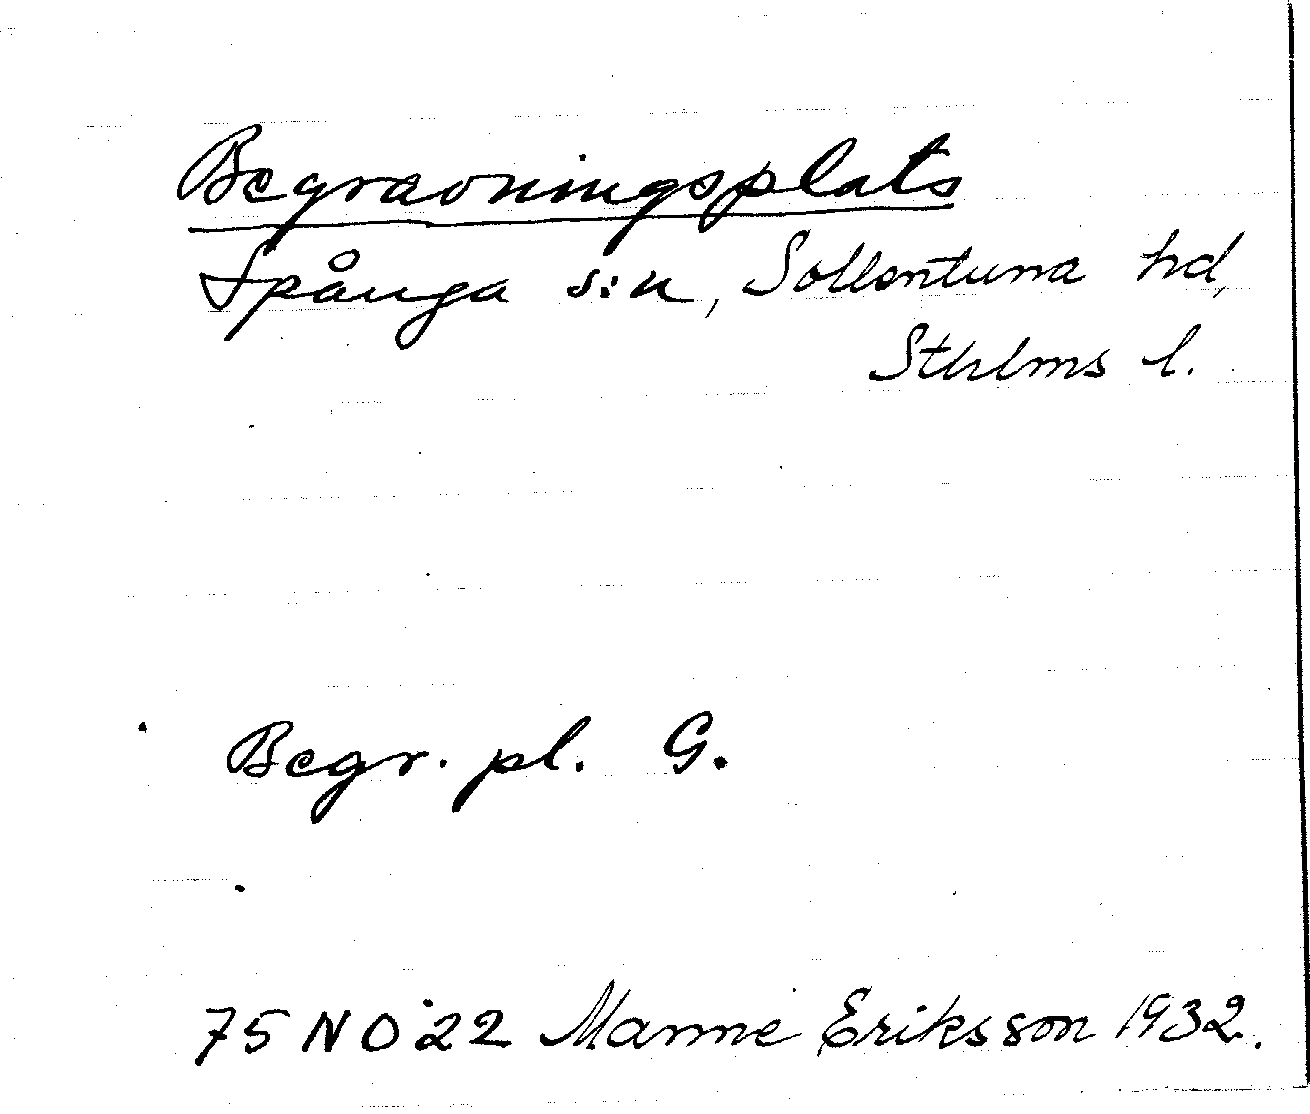 Begravningsplats
Spånga s:n, Sollentuna hd,
Sthlms l.
Begr. pl. G.
75 N O 22 Manne Eriksson 1932.